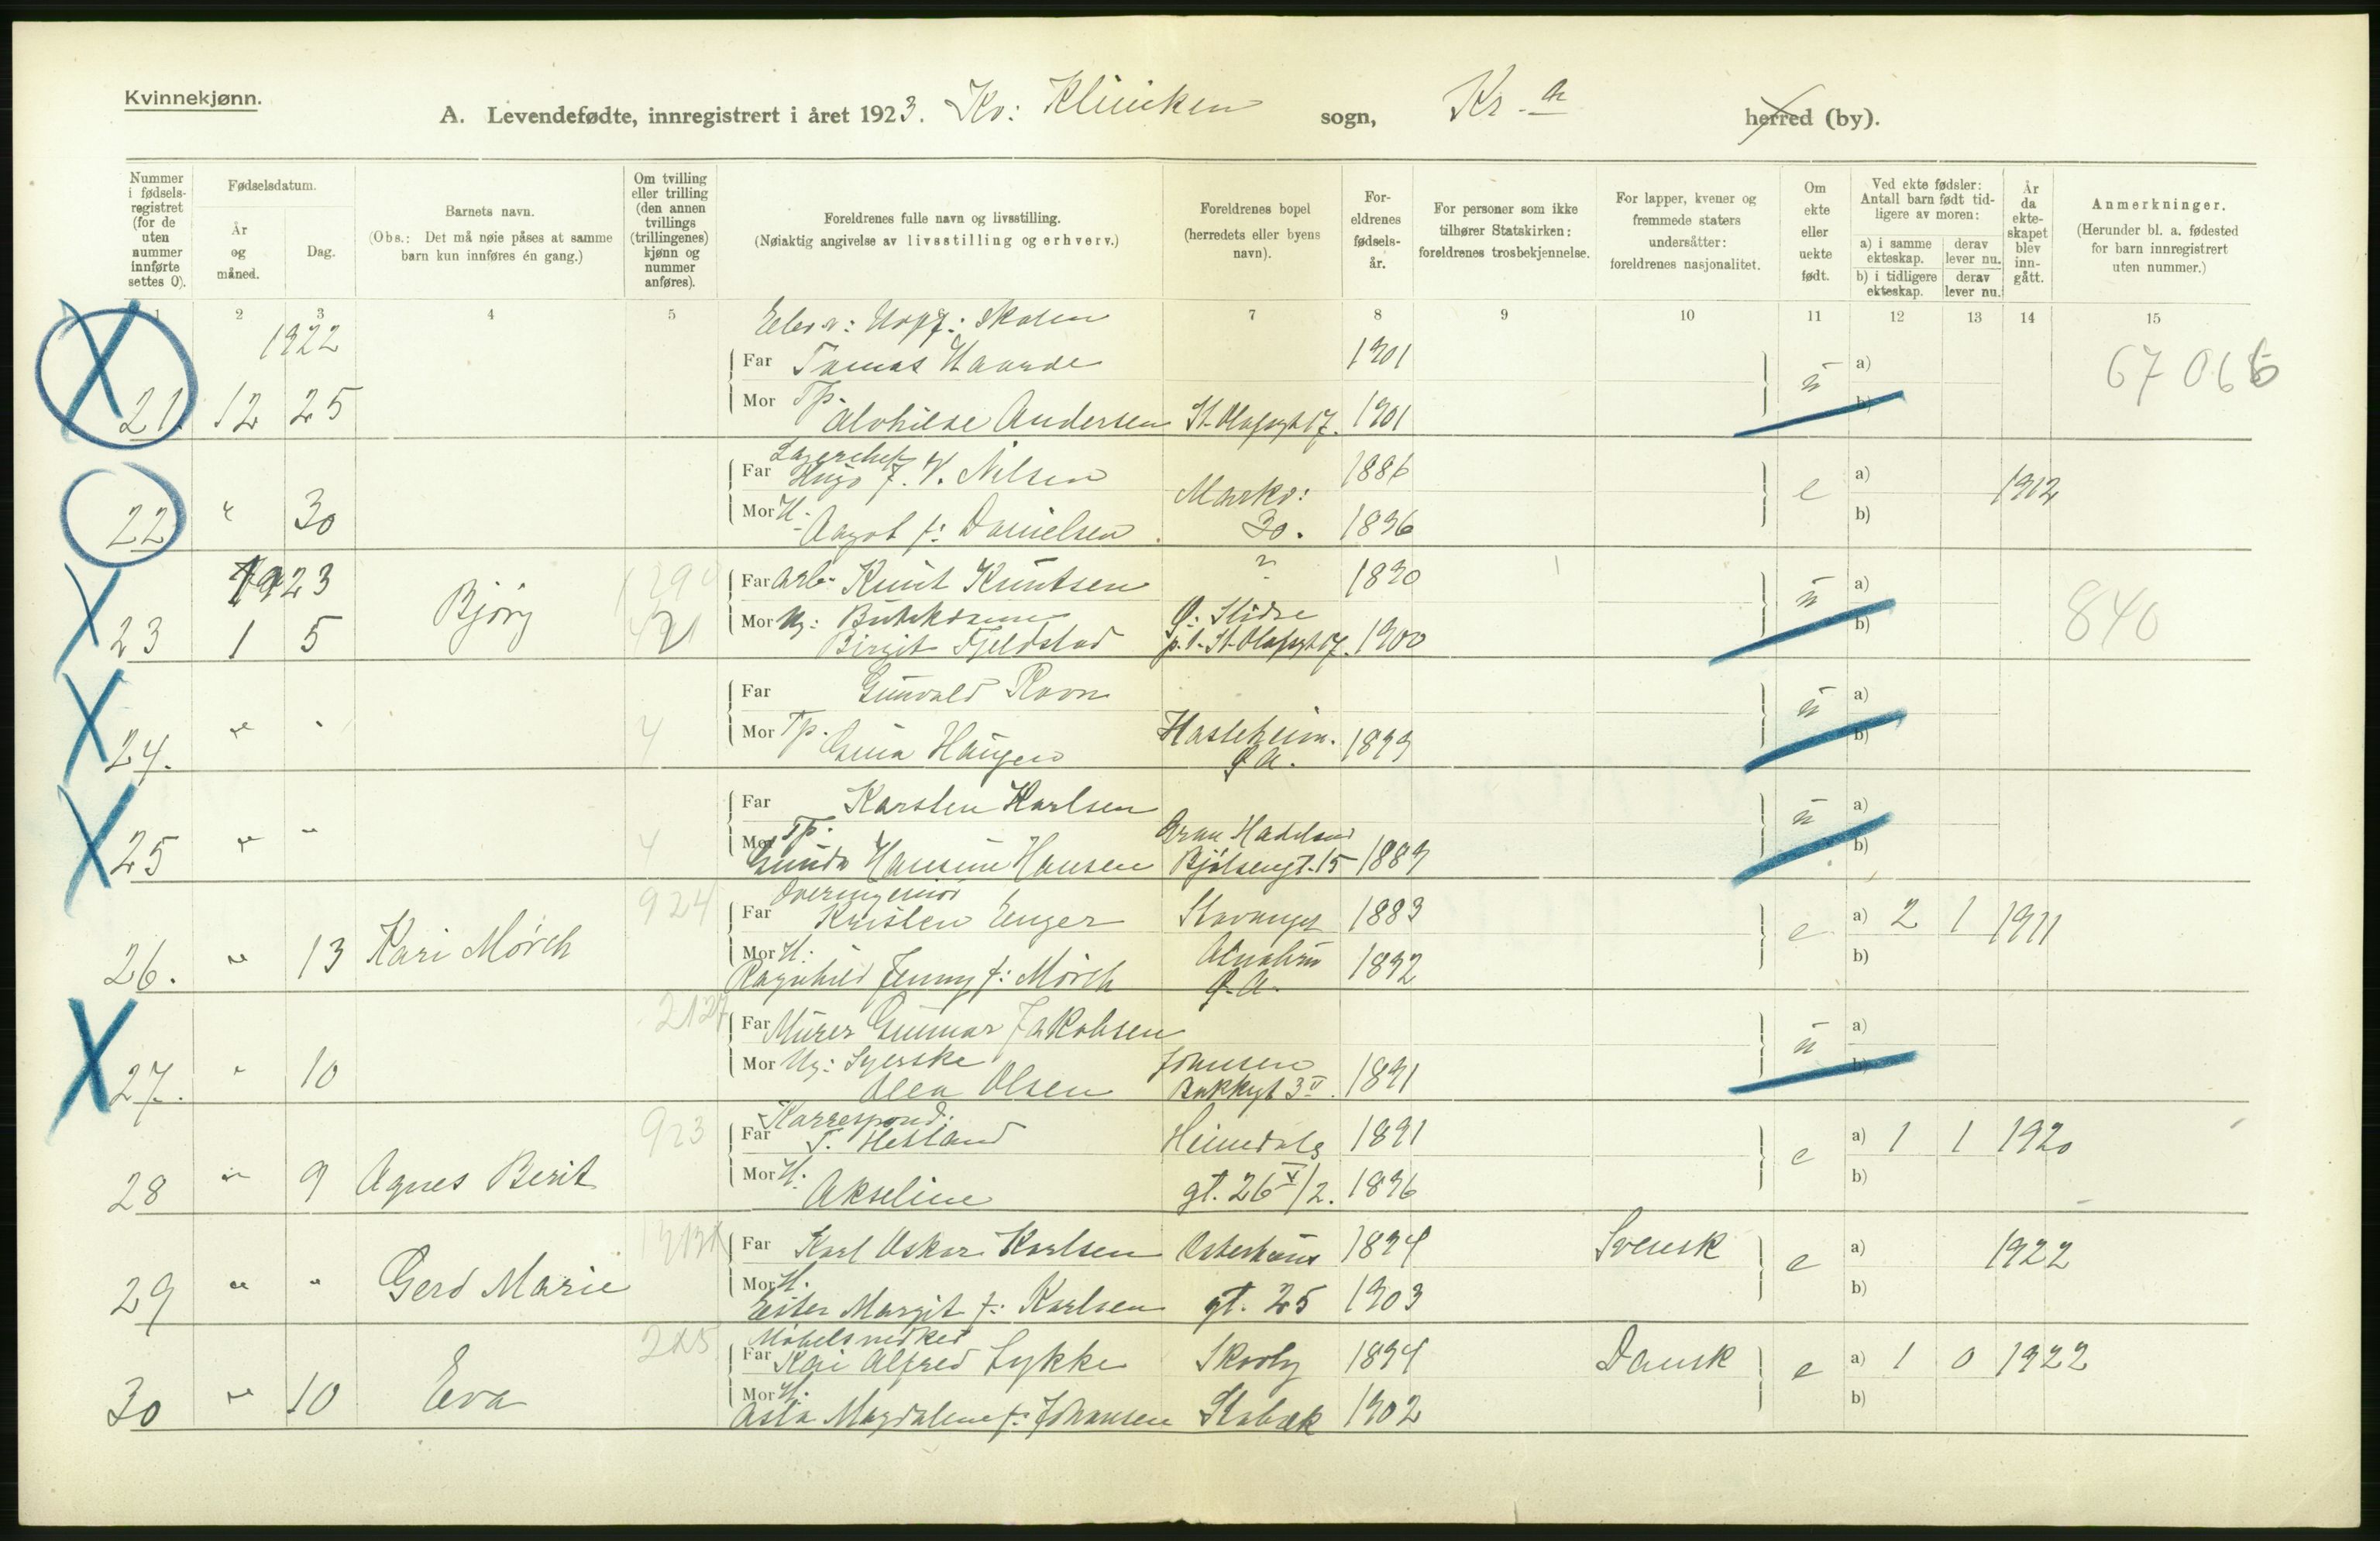 Kvinnekjønn.
A. Levendefødte, innregistrert i året 1923. Kv: Kliniken sogn, Kr.a herred (by).
Nummer i fødselsregistret (for de uten nummer innførte settes 0).
Fødselsdatum.
År og måned.
Dag.
Barnets navn.
(Obs.: Det må nøie påses at samme barn kun innføres én gang.)
Om tvilling eller trilling (den annen tvillings (trillingenes) kjønn og nummer anføres).
Foreldrenes fulle navn og livsstilling.
(Nøiaktig angivelse av livsstilling og erhverv.)
Foreldrenes bopel (herredets eller byens navn).
Foreldrenes fødselsår.
For personer som ikke tilhører Statskirken: foreldrenes trosbekjennelse.
For lapper, kvener og fremmede staters undersåtter: foreldrenes nasjonalitet.
Om ekte eller uekte født.
Ved ekte fødsler: Antall barn født tidligere av moren:
a) i samme ekteskap. derav lever nu.
b) i tidligere ekteskap. derav lever nu.
År da ekteskapet blev inngått.
Anmerkninger.
(Herunder bl. a. fødested for barn innregistrert uten nummer.)
1 2 3 4 5 7 8 9 10 11 12 13 14 15
1922
Far Tomas Haarde 1901 ü a) 67066
21. 12 25 Mor Tp. Alvhilde Andersen St. Olafsgt 17. 1901 b)
Lagerchef
Far Hugo F. V. Nilsen Markv: 1886 e a) 1912
22 " 30 Mor H. Aagot f: Danielsen 30. 1896 b)
1923
Far Arb. Knut Knutsen ? 1890 ü a) 840
Bjørg
23 1 5 Mor Ug: Birgit Fjeldstad Ø: Slidre p.t. St. Olafsgt 17. 1900 b)
Far Gunvald Ravn ü a)
24. " " 4 Mor Tp. Haugen Hasleheim. Ø.A. 1899 b)
Far Karsten Karlsen Gran Hadeland ü a)
25 " " 4 Mor Tp. Gunda Hansine Hansen Bjølsengt. 15 1889 b)
924 Overingeniør
Far Kristen Enger Stavanger 1883 e a) 2 1 1911
26. " 13 Kari Mørch Mor H: Ragnhild Jenny f: Mørch Alnabru Ø.A. 1892 b)
2127 Far Murer Gunnar Jakobsen ü a)
27. " 10 Mor Ug: Syerske Olea Olsen 1891 b)
923 Korrespond.
Far T. Hetland Heimdals 1891 e a) 1 1 1920
28 " 9 Agnes Berit Mor H. Akseline gt. 26 V/2. 1896 b)
Far Karl Oskar Karlsen Osterhaus 1894 Svensk e a) 1922
29 " " Gerd Marie Mor H. Ester Margit f: Karlsen gt. 25 1903 b)
Møbelsnedker
Far Kai Alfred Lykke 1894 Dansk e a) 1 0 1922
30 " 10 Eva Mor H. Asta Magdalene f: Johansen Stabæk 1902 b)